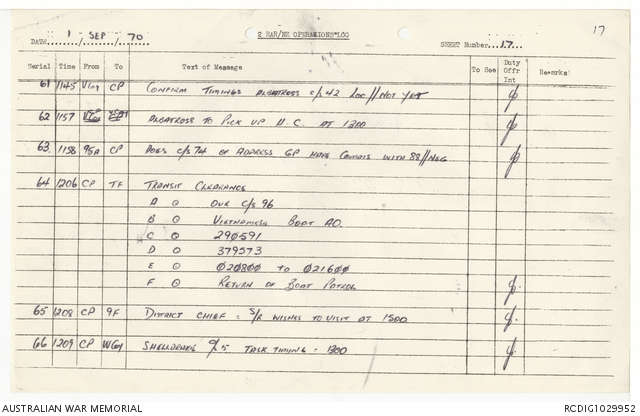 2 RAR/NZ OPERATIONS LOG
17
DATE 1 SEP 70
SHEET Number 17
Serial Time From To Text of Message To See Duty Offr Int Remarks
61 1145 CP CONFIRM TIMINGS ALBATROSS C/S 42 LOC // NOT YET
62 1157 ALBATROSS TO PICK UP D.C. AT 1300
63 1158 95A CP DOES C/S 74 OF ADDRESS GP HAVE COMMS WITH 88 // NEG
64 1206 CP TF TRANSIT CLEARANCE
A OUR C/S 96
B VIETNAMESE BOAT AO.
C 290591
D 379573
E 020800 TO 021600
F RETURN OF BOAT PATROL
65 1208 CP 9F DISTRICT CHIEF : S/R WISHES TO VISIT AT 1500
66 1209 CP SHELLDRAKE TASK TIMING - 1300
AUSTRALIAN WAR MEMORIAL
RCDIG1029952